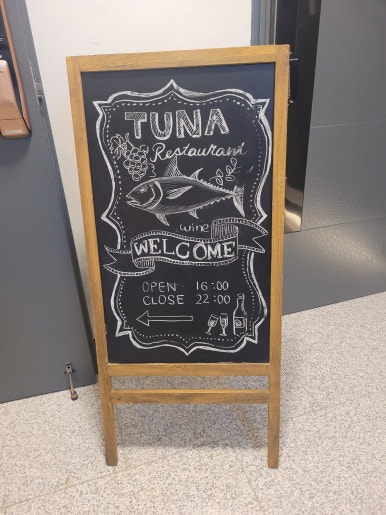 TUNA
Restaurant
wine
WELCOME
OPEN 16:00
CLOSE 22:00